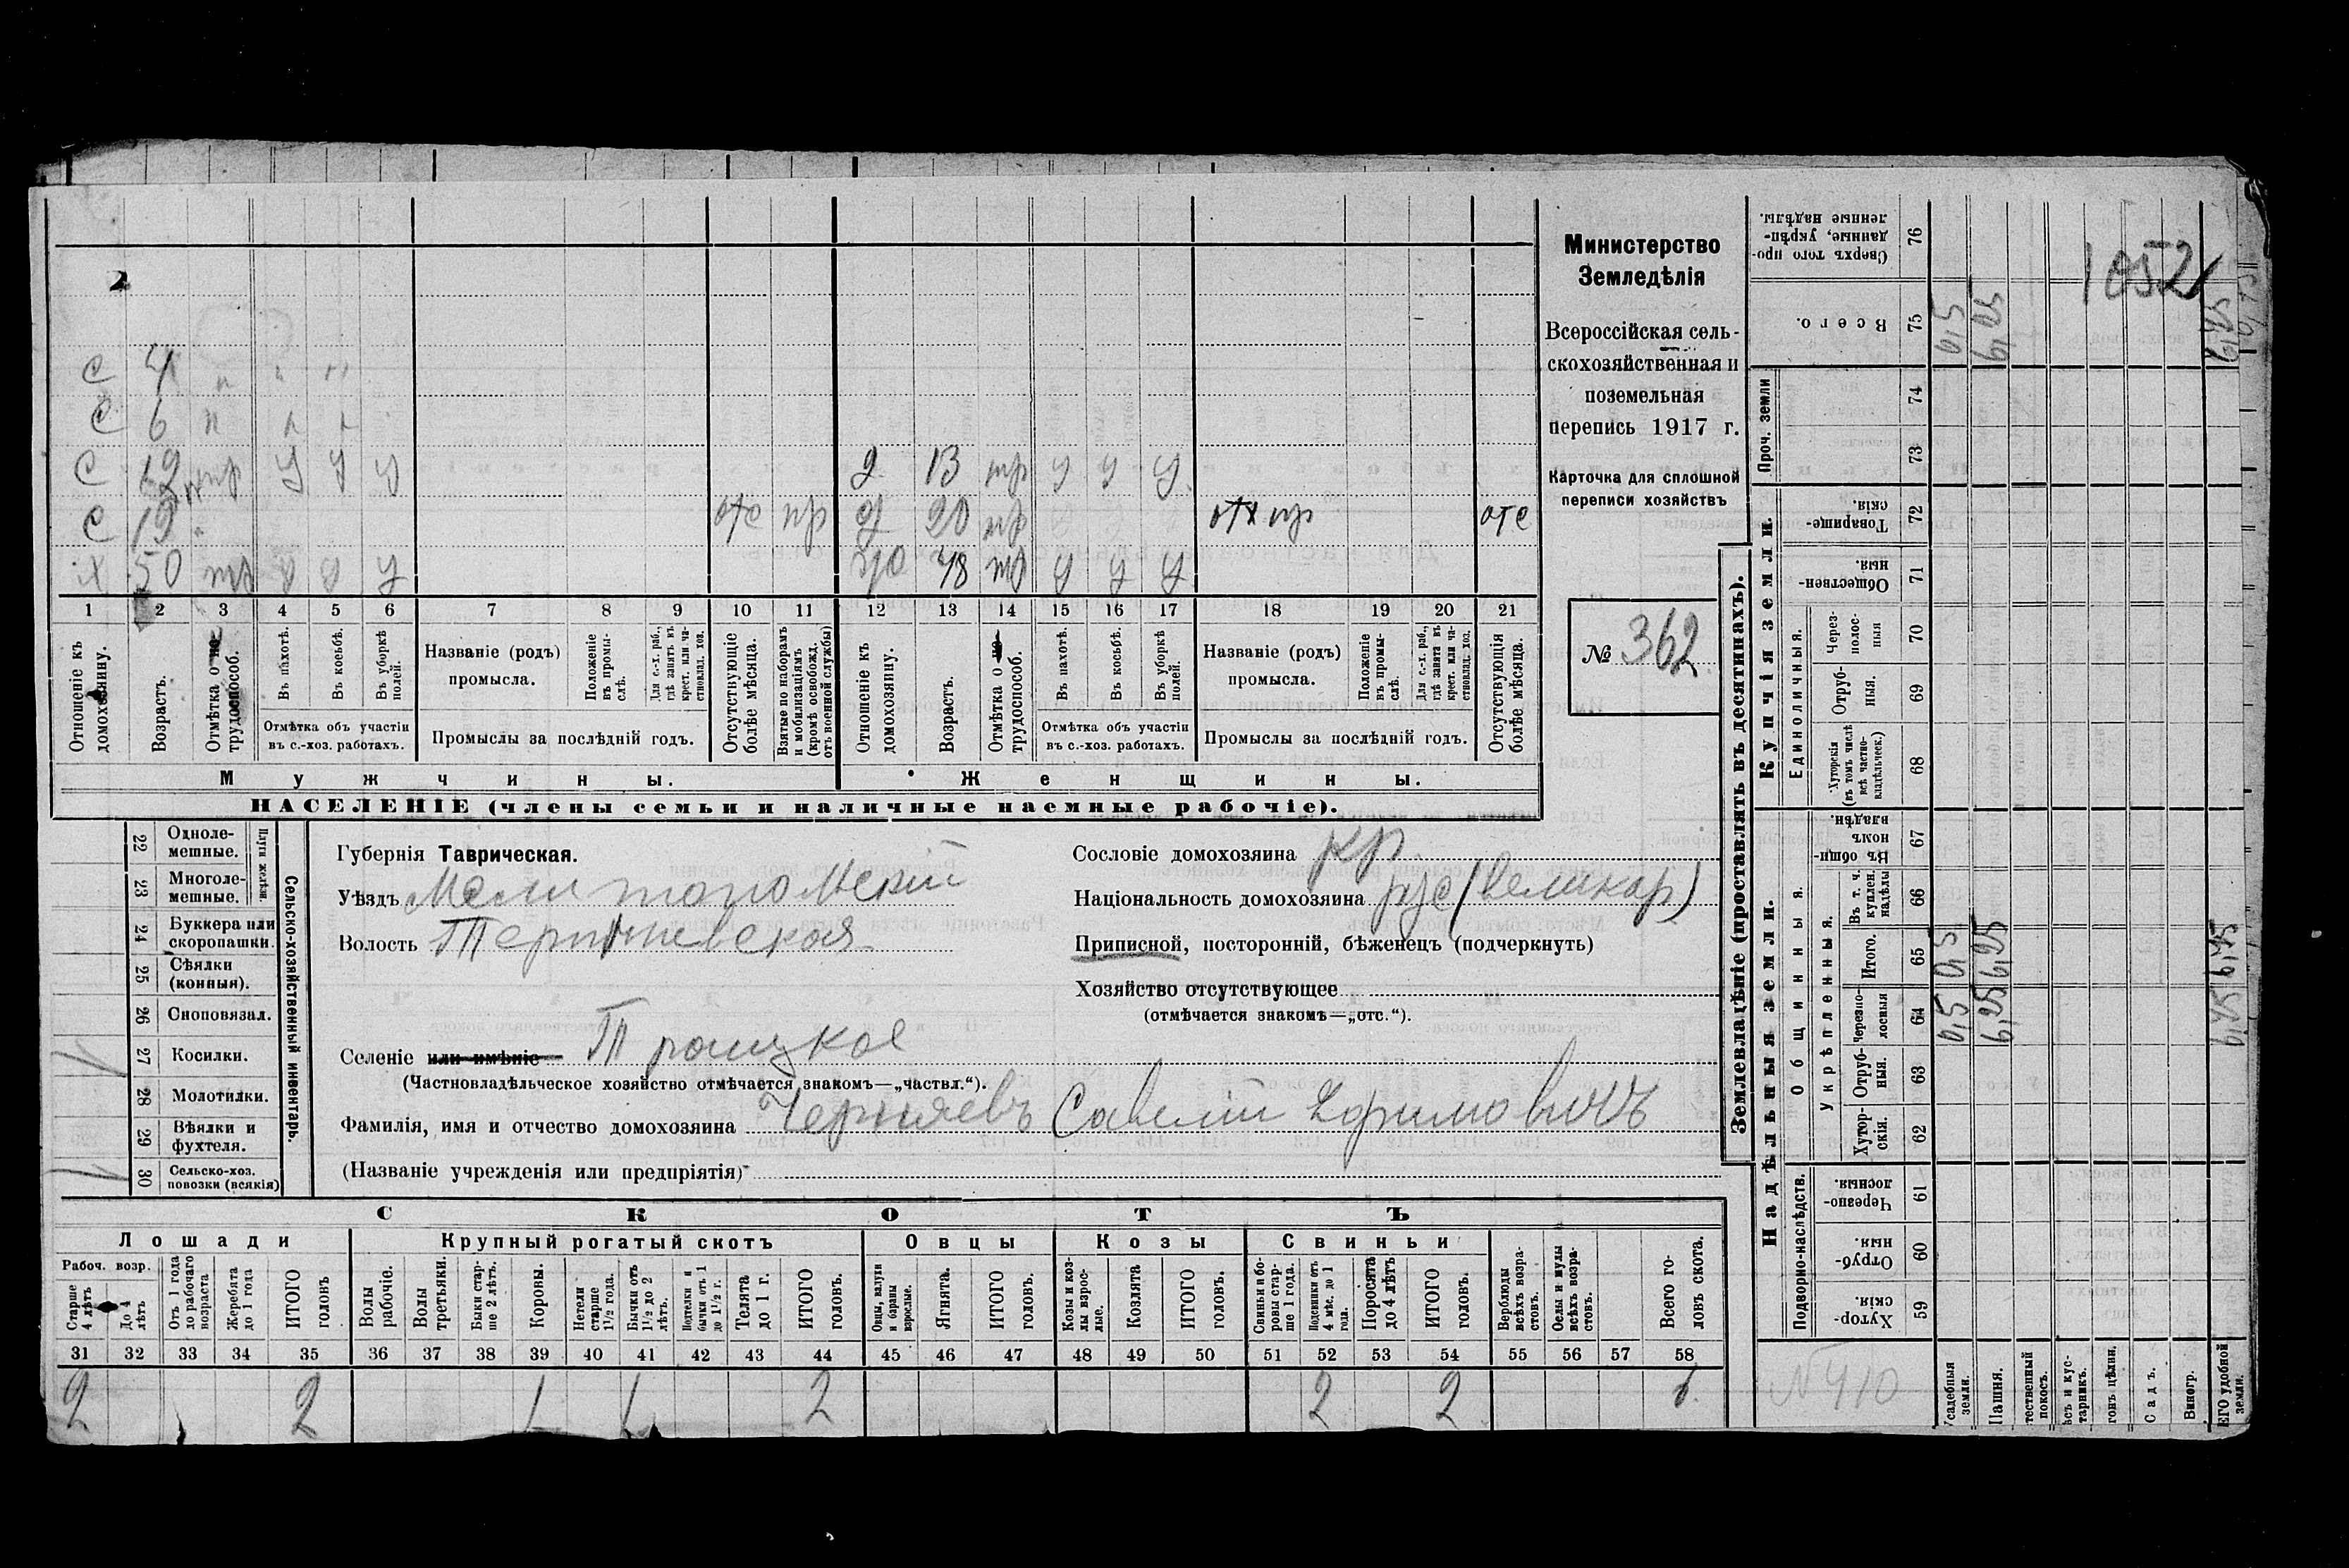 с 4 " " "
с 6 н
с 12 тр у у у 2 13 тр у у у
с 19 отс пр д 20 пр отх пр отс
х 50 тр у у у жо 48 тр у у у
1 2 3 4 5 6 7 8 9 10 11 12 13 14 15 16 17 18 19 20 21
Отношеніе къ домохозяину.
Возрастъ.
Отмѣтка о трудоспособ.
Въ пахотѣ.
Въ косьбѣ.
Въ уборкѣ полей.
Отмѣтка объ участіи въ с.-хоз. работахъ.
Названіе (родъ) промысла.
Положеніе въ промыслѣ.
Для с.-х. раб., гдѣ занятъ въ крест. или частновлад. хоз.
Промыслы за послѣдній годъ.
Отсутствующіе болѣе мѣсяца.
Взятые по наборамъ и мобилизаціямъ (кромѣ освобожд. отъ военной службы)
Отношеніе къ домохозяину.
Возрастъ.
Отмѣтка о трудоспособ.
Въ пахотѣ.
Въ косьбѣ.
Въ уборкѣ полей.
Отмѣтка объ участіи въ с.-хоз. работахъ.
Названіе (родъ) промысла.
Положеніе въ промыслѣ.
Для с.-х. раб., гдѣ занята въ крест. или частновлад. хоз.
Промыслы за послѣдній годъ.
Отсутствующія болѣе мѣсяца.
Мужчины. Женщины.
НАСЕЛЕНІЕ (члены семьи и наличные наемные рабочіе).
Министерство
Земледѣлія
Всероссійская сель-
скохозяйственная и
поземельная
перепись 1917 г.
Карточка для сплошной
переписи хозяйствъ
№ 362
Сельско-хозяйственный инвентарь.
Плуги желѣзн.
22 Одноле-мешные.
23 Многоле-мешные.
24 Буккера или скоропашки.
25 Сѣялки (конныя).
26 Сноповязал.
27 Косилки.
28 Молотилки.
29 Вѣялки и фухтеля.
30 Сельско-хоз. повозки (всякія)
Губернія Таврическая.
Уѣздъ Мелитопольскій
Волость
Селеніе или имѣніе Троицкое
(Частновладѣльческое хозяйство отмѣчается знакомъ—„частвл.“).
Фамилія, имя и отчество домохозяина Черняевъ Савелій
(Названіе учрежденія или предпріятія)
Сословіе домохозяина кр.
Національность домохозяина рус (великор)
Приписной, посторонній, бѣженецъ (подчеркнуть)
Хозяйство отсутствующее
(отмѣчается знакомъ—„отс.“).
СКОТЪ
Лошади Крупный рогатый скотъ Овцы Козы Свиньи
Рабоч. возр.
Старше 4 лѣтъ
До 4 лѣтъ
Отъ 1 года до рабочаго возраста
Жеребята до 1 года
ИТОГО головъ
Волы рабочіе.
Волы третьяки.
Быки старше 2 лѣтъ.
Коровы.
Нетели старше 1½ года.
Бычки отъ 1½ до 2 лѣтъ.
Нетелки и бычки отъ 1 до 1½ г.
Телята до 1 г.
ИТОГО головъ.
Овцы, валухи и бараны взрослые.
Ягнята.
ИТОГО головъ.
Козы и козлы взрослые.
Козлята
ИТОГО головъ.
Свиньи и боровы старше 1 года.
Подсвинки отъ 4 мѣс. до 1 года.
Поросята до 4 лѣтъ
ИТОГО головъ.
Верблюды всѣхъ возрастовъ.
Ослы и мулы всѣхъ возрастовъ.
Всего головъ скота.
31 32 33 34 35 36 37 38 39 40 41 42 43 44 45 46 47 48 49 50 51 52 53 54 55 56 57 58
2 2 1 1 2 2 2 6
Землевладѣніе (проставлять въ десятинахъ).
Надѣльныя земли.
Купчія земли.
Проч. земли
Подворно-наслѣдств.
Общинныя.
Укрѣпленныя.
Единоличныя.
59 Хутор-скія.
60 Отруб-ныя.
61 Черезпо-лосныя.
62 Хутор-скія.
63 Отруб-ныя.
64 Черезпо-лосныя 0,5 6,25 6,75
65 Итого. 0,5 6,25 6,75
66 Въ т. ч. куплен. надѣлы
67 Въ общинномъ владѣн.
68 Хуторскія (въ томъ числѣ всѣ частно-владѣльческ.)
69 Отруб-ныя.
70 Через-полос-ныя
71 Обществен-ныя.
72 Товарище-скія.
73
74
75 Всего. 0,5 6,25 6,75
76 Сверхъ того про-данные, укрѣп-ленные надѣлы.
1052
№ 410
усадебныя земли.
Пашня.
тественный покосъ.
ѣсъ и кус-тарникъ.
гонъ цѣлин.
Садъ.
Виногр.
ЕГО удобной земли.